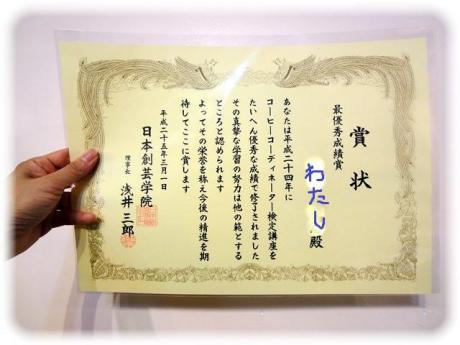 賞状
最優秀成績賞
わたし 殿
あなたは平成二十四年に
コーヒーコーディネーター検定講座を
たいへん優秀な成績で修了されました
その真摯な学習の努力は他の範とする
ところと認められます
よってその栄誉を称え今後の精進を期
待してここに賞します
平成二十五年三月一日
日本創芸学院
理事長 浅井三郎